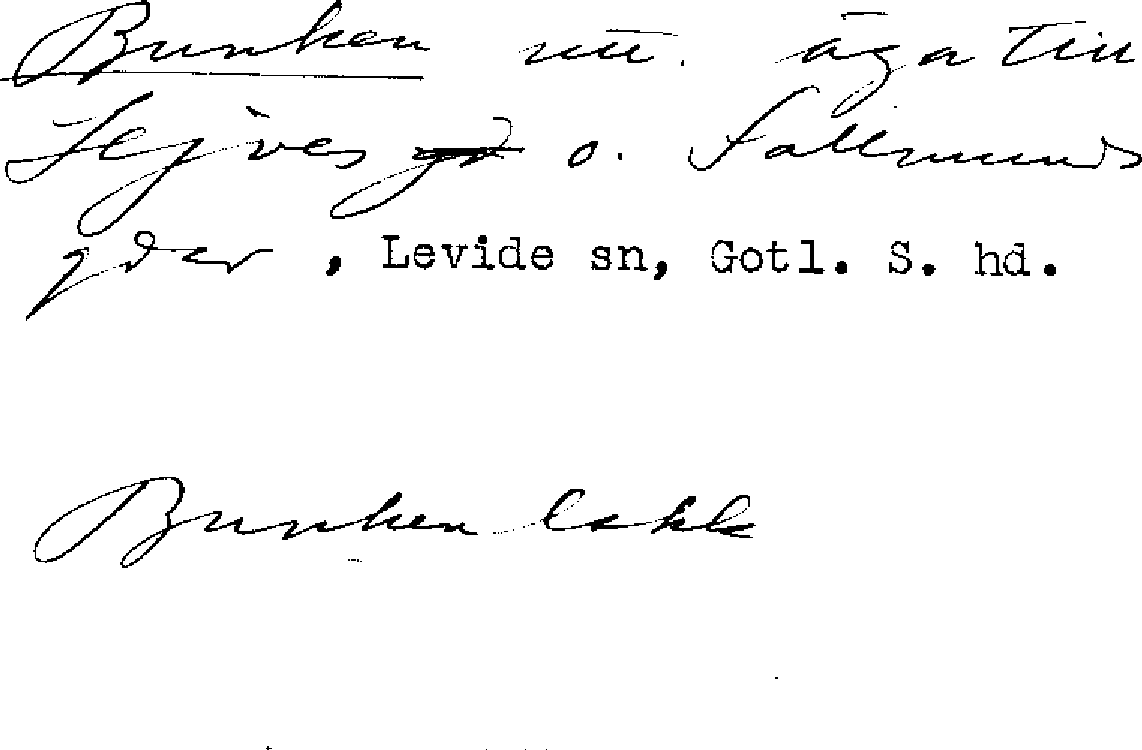 Bunken nu. äga till
Lejves o. Sallmunds
gdar, Levide sn, Gotl. S. hd.
Bunken